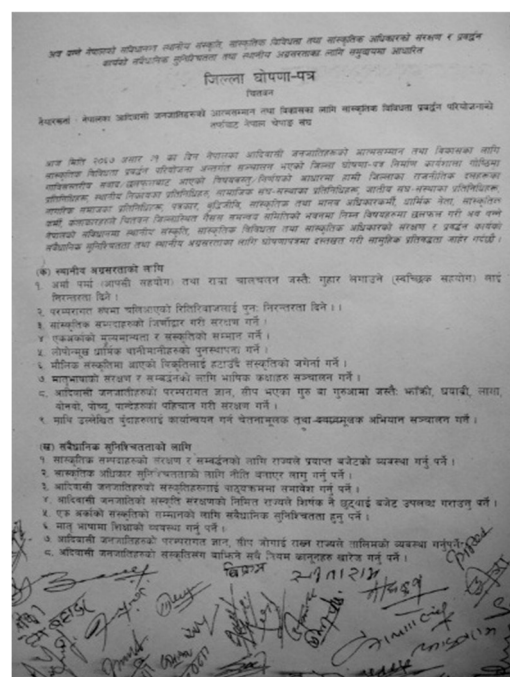 अब बन्ने नेपालको संविधानमा स्थानीय संस्कृति, सांस्कृतिक विविधता तथा सांस्कृतिक अधिकारको संरक्षण र प्रवर्द्धन
कार्यको संवैधानिक सुनिश्चितता तथा स्थानीय अग्रसरताका लागि समुदायमा आधारित
जिल्ला घोषणा-पत्र
चितवन
तयारकर्ता : नेपालका आदिवासी जनजातिहरूको आत्मसम्मान तथा विकासका लागि सांस्कृतिक विविधता प्रवर्द्धन परियोजनाको
तर्फबाट नेपाल चेपाङ संघ
आज मिति २०६७ असार का दिन नेपालका आदिवासी जनजातिहरूको आत्मसम्मान तथा विकासका लागि
सांस्कृतिक विविधता प्रवर्द्धन परियोजना अन्तर्गत सञ्चालन भएको जिल्ला घोषणा-पत्र निर्माण कार्यशाला गोष्ठीमा
आएको निर्णयको आधारमा हामी जिल्लाका राजनीतिक दलहरूका
प्रतिनिधिहरू, स्थानीय निकायका प्रतिनिधिहरू, सामाजिक संघ-संस्थाका प्रतिनिधिहरू, जातीय संघ-संस्थाका प्रतिनिधिहरू,
नागरिक समाजका प्रतिनिधिहरू, पत्रकार, बुद्धिजीवि, सांस्कृतिक तथा मानव अधिकारकर्मी, धार्मिक नेता, सांस्कृतिक
कर्मी, कलाकारहरूले चितवन जिल्लास्थित गैसस समन्वय समितिको भवनमा निम्न विषयहरूमा छलफल गरी अब बन्ने
नेपालको संविधानमा स्थानीय संस्कृति, सांस्कृतिक विविधता तथा सांस्कृतिक अधिकारको संरक्षण र प्रवर्द्धन कार्यको
संवैधानिक सुनिश्चितता तथा स्थानीय अग्रसरताका लागि घोषणापत्रमा दस्तखत गरी सामूहिक प्रतिबद्धता जाहेर गर्दछौं ।
(क) स्थानीय अग्रसरताको लागि
१. अर्मा पर्मा (आपसी सहयोग) तथा राम्रा चालचलन जस्तै गुहार लगाउने (स्वच्छिक सहयोग) लाई
निरन्तरता दिने ।
२. परम्परागत रुपमा चलिआएको रितिरिवाजलाई पुनः निरन्तरता दिने । ।
३. सांस्कृतिक सम्पदाहरुको जिर्णोद्वार गरी संरक्षण गर्ने ।
४. एकअर्काको मूल्यमान्यता र संस्कृतिको सम्मान गर्ने ।
५. लोपोन्मूख धार्मिक थानीमानीहरुको पुनस्थापना गर्ने ।
६. मौलिक संस्कृतिमा आएको विकृतिलाई हटाउँदै संस्कृतिको जगेर्ना गर्ने ।
७. मातृभाषाको संरक्षण र सम्बर्द्धनको लागि भाषिक कक्षाहरु सञ्चालन गर्ने ।
८. आदिवासी जनजातीहरुको परम्परागत ज्ञान, सीप भएका गुरु वा गुरुआमा जस्तै झाँक्री, धयाब्री, लामा,
वोनवो, पोष्यु, पान्देहरुको पहिचान गरी संरक्षण गर्ने ।
९. माथि उल्लेखित बुँदाहरुलाई कार्यान्वयन गर्न चेतनामूलक तथा अभियान सञ्चालन गर्ने ।
(ख) संवैधानिक सुनिश्चितताको लागि
१. सांस्कृतिक सम्पदाहरुको संरक्षण र सम्बर्द्धनको लागि राज्यले प्रयाप्त बजेटको व्यवस्था गर्नु पर्ने ।
२. सांस्कृतिक अधिकार सुनिश्चितताको लागि नीति बनाएर लागू गर्नु पर्ने ।
३. आदिवासी जनजातिहरुको संस्कृतिहरुलाई पाठ्यक्रममा समावेश गर्नु पर्ने ।
४. आदिवासी जनजातिको संस्कृति संरक्षणको निम्ति राज्यले शिर्षक नै छुट्याई बजेट उपलब्ध गराउनु पर्ने ।
५. एक अर्काको संस्कृतिको सम्मानको लागि संवैधानिक सुनिश्चितता हुनु पर्ने ।
६. मातृ भाषामा शिक्षाको व्यवस्था गर्नु पर्ने ।
७. आदिवासी जनजातिहरुको परम्परागत ज्ञान, सीप जोगाई राख्न राज्यले तालिमको व्यवस्था गर्नुपर्ने ।
८. आदिवासी जनजातिहरुको संस्कृतिसंग बाझिने सबै नियम कानूनहरु खारेज गर्नु पर्ने ।
विक्रम